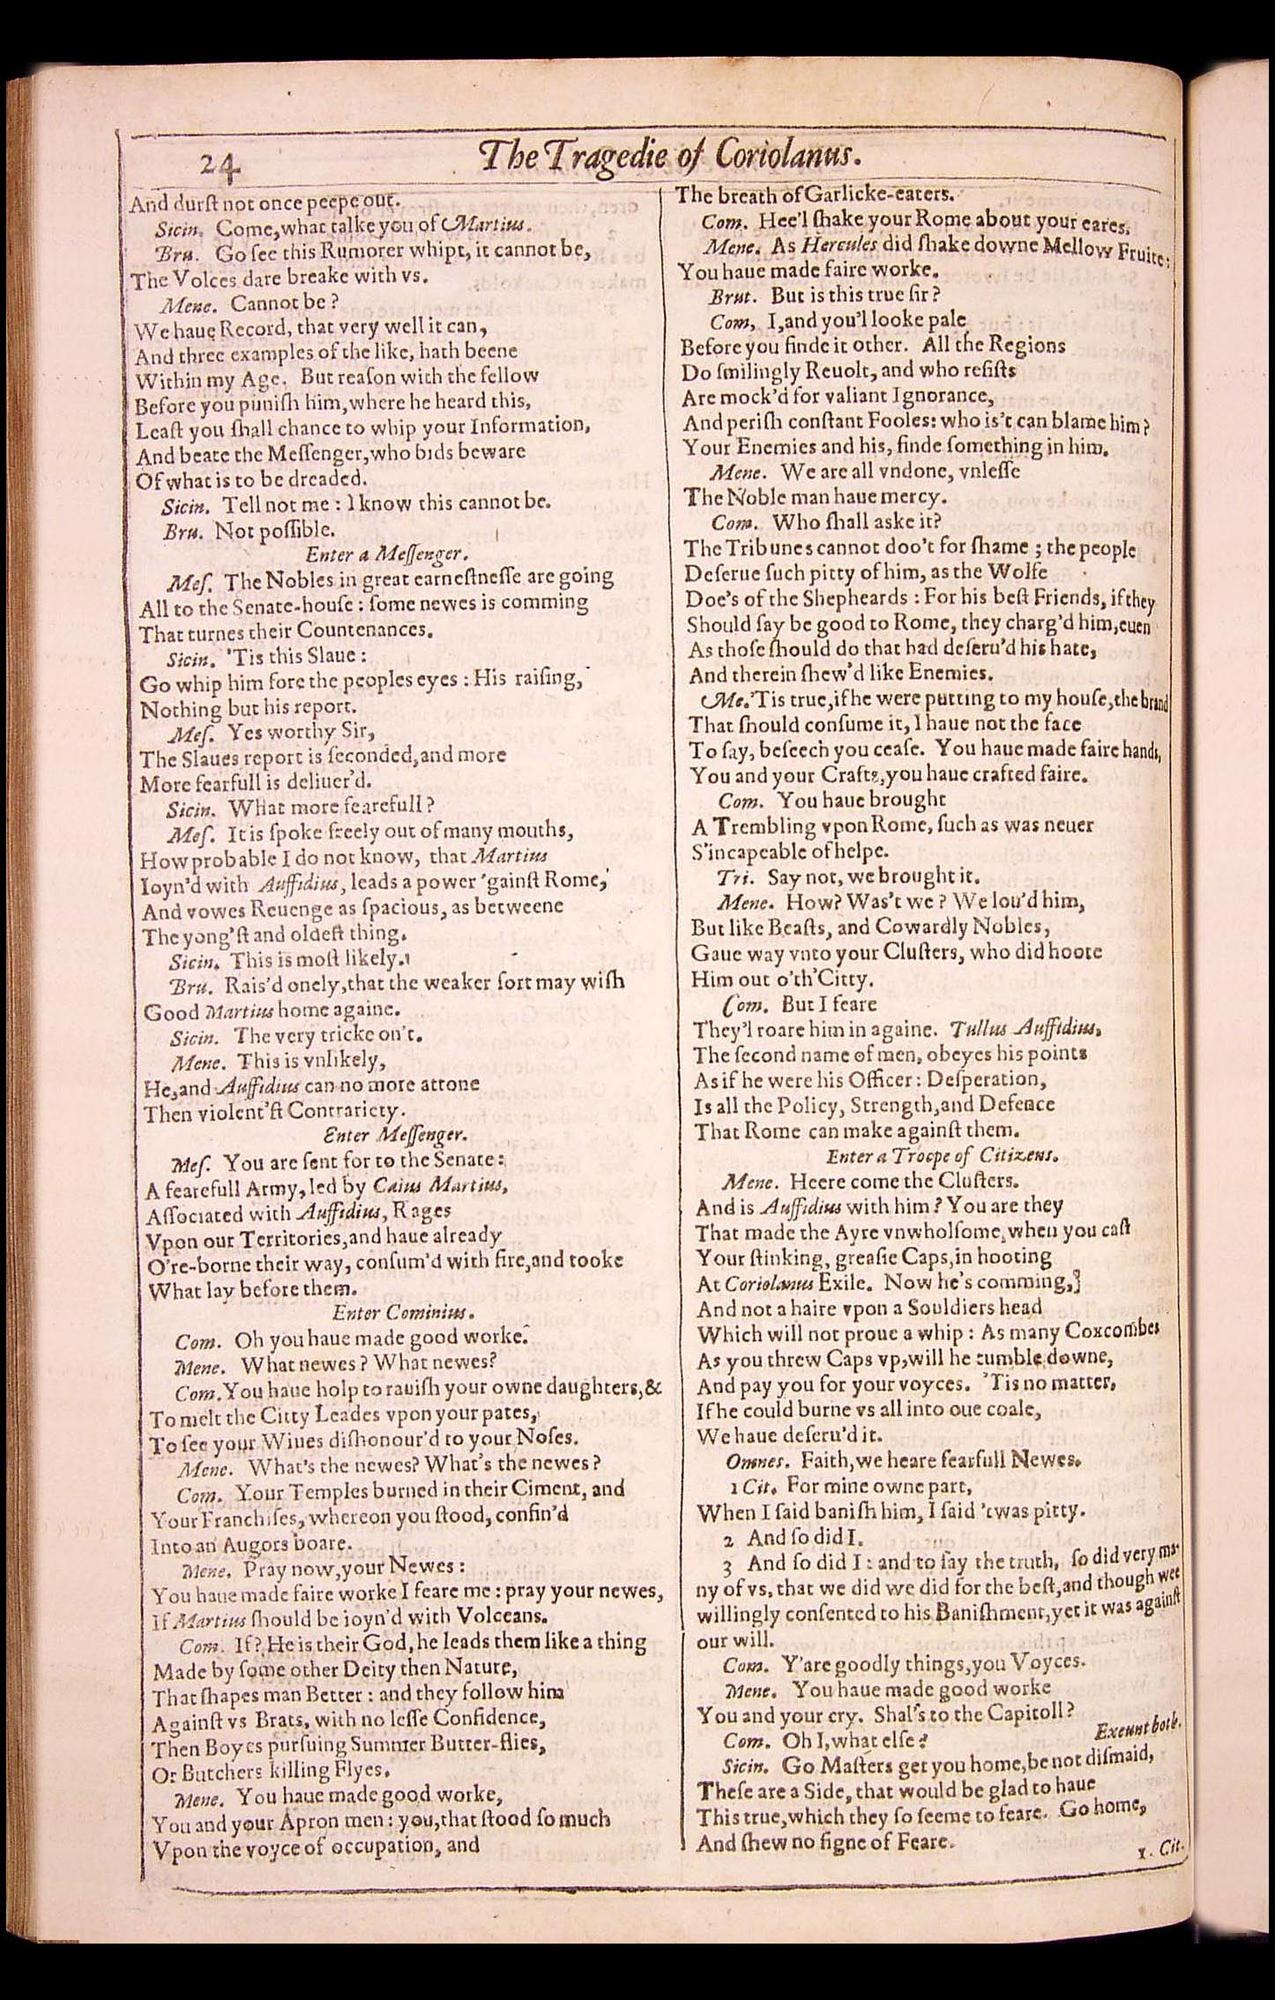 24
The Tragedie of Coriolanus.
And durſt not once peepe out.
Sicin. Come, what talke you of Martius.
Bru. Go ſee this Rumorer whipt, it cannot be,
The Volces dare breake with vs.
Mene. Cannot be?
We haue Record, that very well it can,
And three examples of the like, hath beene
Within my Age. But reaſon with the fellow
Before you puniſh him, where he heard this,
Leaſt you ſhall chance to whip your Information,
And beate the Meſſenger, who bids beware
Of what is to be dreaded.
Sicin. Tell not me: I know this cannot be.
Bru. Not poſſible.
Enter a Meſſenger.
Meſ. The Nobles in great earneſtneſſe are going
All to the Senate-houſe: ſome newes is comming
That turnes their Countenances.
Sicin. 'Tis this Slaue:
Go whip him fore the peoples eyes: His raiſing,
Nothing but his report.
Meſ. Yes worthy Sir,
The Slaues report is ſeconded, and more
More fearfull is deliuer'd.
Sicin. What more fearefull?
Meſ. It is ſpoke freely out of many mouths,
How probable I do not know, that Martius
Ioyn'd with Auffidius, leads a power 'gainſt Rome,
And vowes Reuenge as ſpacious, as betweene
The yong'ſt and oldeſt thing.
Sicin. This is moſt likely.
Bru. Rais'd onely, that the weaker ſort may wiſh
Good Martius home againe.
Sicin. The very tricke on't.
Mene. This is vnlikely,
He, and Auffidius can no more attone
Then violent'ſt Contrariety.
Enter Meſſenger.
Meſ. You are ſent for to the Senate:
A fearefull Army, led by Caius Martius,
Aſſociated with Auffidius, Rages
Vpon our Territories, and haue already
O're-borne their way, conſum'd with fire, and tooke
What lay before them.
Enter Cominius.
Com. Oh you haue made good worke.
Mene. What newes? What newes?
Com. You haue holp to rauiſh your owne daughters, &
To melt the Citty Leades vpon your pates,
To ſee your Wiues diſhonour'd to your Noſes.
Mene. What's the newes? What's the newes?
Com. Your Temples burned in their Ciment, and
Your Franchiſes, whereon you ſtood, confin'd
Into an Augors boare.
Mene. Pray now, your Newes:
You haue made faire worke I feare me: pray your newes,
If Martius ſhould be ioyn'd with Volceans.
Com. If? He is their God, he leads them like a thing
Made by ſome other Deity then Nature,
That ſhapes man Better: and they follow him
Againſt vs Brats, with no leſſe Confidence,
Then Boyes purſuing Summer Butter-flies,
Or Butchers killing Flyes.
Mene. You haue made good worke,
You and your Apron men: you, that ſtood ſo much
Vpon the voyce of occupation, and
The breath of Garlicke-eaters.
Com. Hee'l ſhake your Rome about your eares.
Mene. As Hercules did ſhake downe Mellow Fruite:
You haue made faire worke.
Brut. But is this true ſir?
Com, I, and you'l looke pale
Before you finde it other. All the Regions
Do ſmilingly Reuolt, and who reſiſts
Are mock'd for valiant Ignorance,
And periſh conſtant Fooles: who is't can blame him?
Your Enemies and his, finde ſomething in him.
Mene. We are all vndone, vnleſſe
The Noble man haue mercy.
Com. Who ſhall aske it?
The Tribunes cannot doo't for ſhame; the people
Deſerue ſuch pitty of him, as the Wolfe
Doe's of the Shepheards: For his beſt Friends, if they
Should ſay be good to Rome, they charg'd him, euen
As thoſe ſhould do that had deſeru'd his hate,
And therein ſhew'd like Enemies.
Me. 'Tis true, if he were putting to my houſe, the brand
That ſhould conſume it, I haue not the face
To ſay, beſeech you ceaſe. You haue made faire hands,
You and your Crafts, you haue crafted faire.
Com. You haue brought
A Trembling vpon Rome, ſuch as was neuer
S'incapeable of helpe.
Tri. Say not, we brought it.
Mene. How? Was't we? We lou'd him,
But like Beaſts, and Cowardly Nobles,
Gaue way vnto your Cluſters, who did hoote
Him out o'th'Citty.
Com. But I feare
They'l roare him in againe. Tullus Auffidius,
The ſecond name of men, obeyes his points
As if he were his Officer: Deſperation,
Is all the Policy, Strength, and Defence
That Rome can make againſt them.
Enter a Troope of Citizens.
Mene. Heere come the Cluſters.
And is Auffidius with him? You are they
That made the Ayre vnwholſome, when you caſt
Your ſtinking, greaſie Caps, in hooting
At Coriolanus Exile. Now he's comming,
And not a haire vpon a Souldiers head
Which will not proue a whip: As many Coxcombes
As you threw Caps vp, will he tumble downe,
And pay you for your voyces. 'Tis no matter,
If he could burne vs all into one coale,
We haue deſeru'd it.
Omnes. Faith, we heare fearfull Newes.
1 Cit. For mine owne part,
When I ſaid baniſh him, I ſaid 'twas pitty.
2 And ſo did I.
3 And ſo did I: and to ſay the truth, ſo did very ma-
ny of vs, that we did we did for the beſt, and though wee
willingly conſented to his Baniſhment, yet it was againſt
our will.
Com. Y'are goodly things, you Voyces.
Mene. You haue made good worke
You and your cry. Shal's to the Capitoll?
Com. Oh I, what elſe?
Exeunt both.
Sicin. Go Maſters get you home, be not diſmaid,
Theſe are a Side, that would be glad to haue
This true, which they ſo ſeeme to feare. Go home,
And ſhew no ſigne of Feare.
1. Cit.